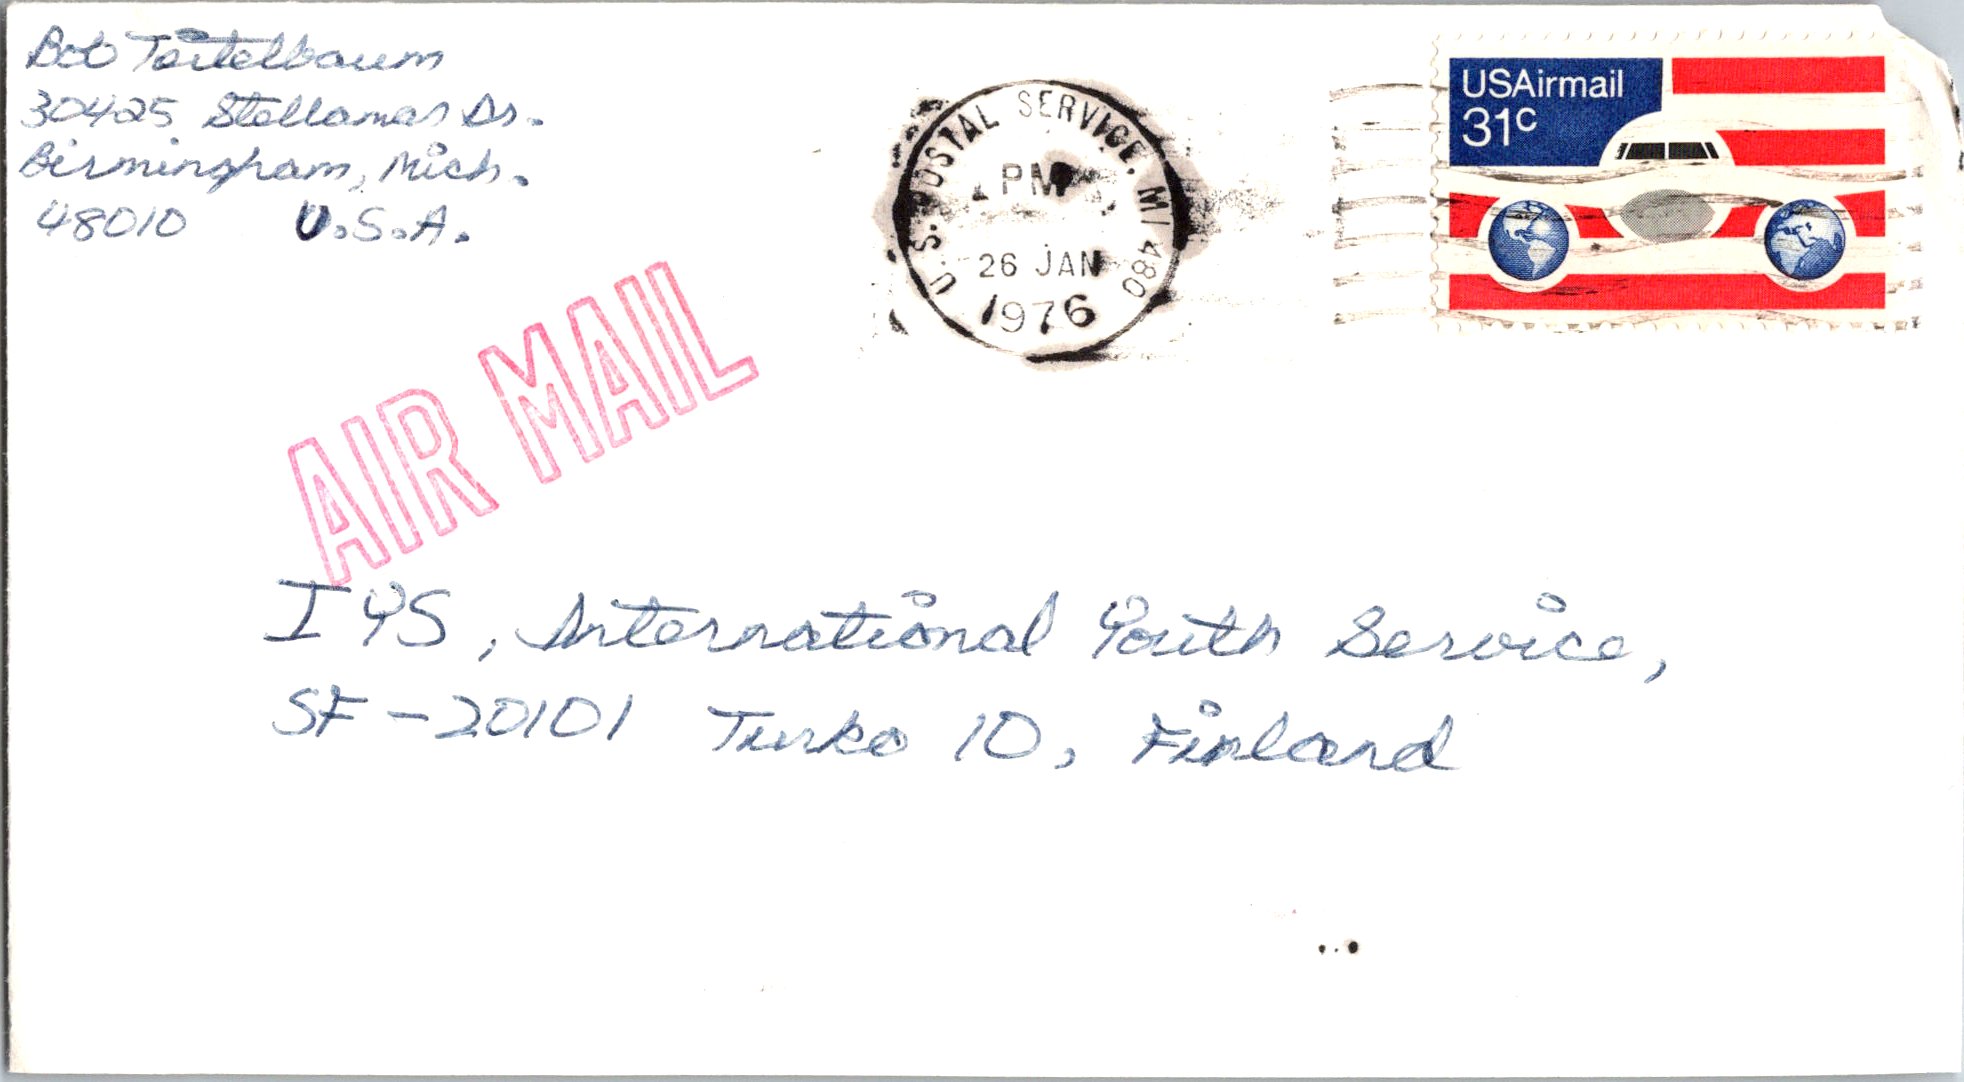 Bob Teitelbaum
30425 Stellamar Dr.
Birmingham, Mich.
48010 U.S.A.
U.S. POSTAL SERVICE. MI 480
PM
26 JAN
1976
USAirmail
31c
AIR MAIL
IYS, International Youth Service,
SF-20101 Turko 10, Finland